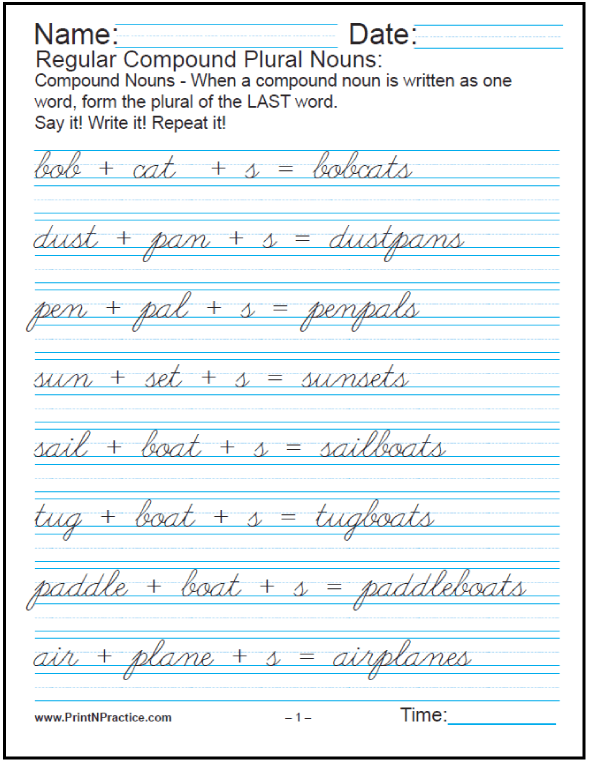 Name: Date:
Regular Compound Plural Nouns:
Compound Nouns - When a compound noun is written as one
word, form the plural of the LAST word.
Say it! Write it! Repeat it!
bob + cat + s = bobcats
dust + pan + s = dustpans
pen + pal + s = penpals
sun + set + s = sunsets
sail + boat + s = sailboats
tug + boat + s = tugboats
paddle + boat + s = paddleboats
air + plane + s = airplanes
www.PrintNPractice.com – 1 – Time: